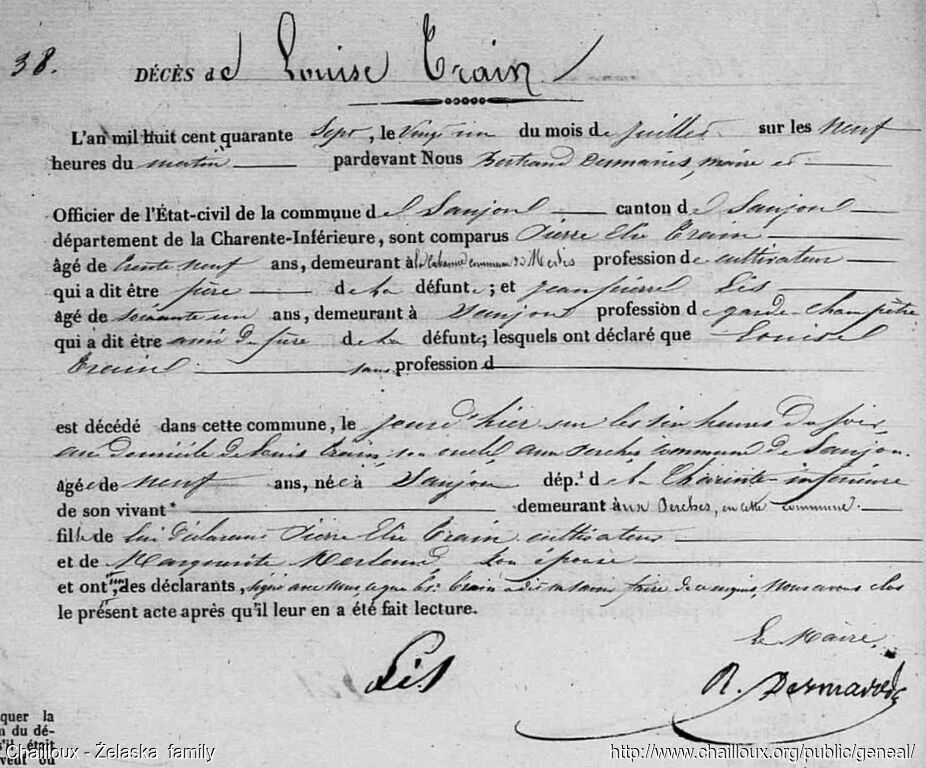 38. DÉCÈS de Louise Train
L'an mil huit cent quarante Sept, le Vingt un du mois de Juillet sur les neuf
heures du matin pardevant Nous Bertrand Desmaries, maire et
Officier de l'État-civil de la commune de Saujon canton de Saujon
département de la Charente-Inférieure, sont comparus Pierre Elie Train
âgé de trente neuf ans, demeurant à la Cabanne commune de Médis profession de cultivateur
qui a dit être père de la défunte; et Jean pierre Lis
âgé de soixante un ans, demeurant à Saujon profession de garde-champêtre
qui a dit être ami du père de la défunte; lesquels ont déclaré que Louise
Train sans profession d
est décédé dans cette commune, le jour d'hier sur les six heures du soir,
au domicile de Louis Train, son oncle, aux commune de Saujon.
âgée de neuf ans, née à Saujon dép.t de la Charente-inférieure
de son vivant* demeurant aux en cette commune.
fille de lui déclarant Pierre Elie Train cultivateur
et de Marguerite son épouse
et ont, les déclarants, signé avec nous, ce que le s.r Train a dit ne savoir faire de ce enquis, nous avons clos
le présent acte après qu'il leur en a été fait lecture.
Le Maire,
Lis
R. Desmaries
quer la
n du dé-
s'il était
veuf ou
Chailloux - Želaska family http://www.chailloux.org/public/geneal/